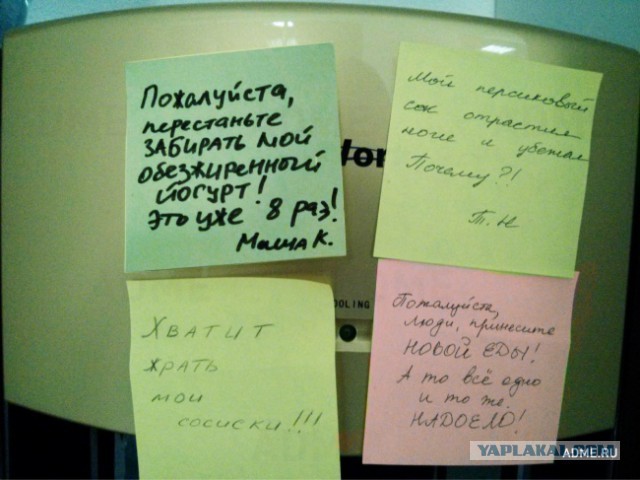 Пожалуйста,
перестаньте
ЗАБИРАТЬ МОЙ
обезжиренный
ЙОГУРТ!
Это уже 8 раз!
Маша К.
Мой персиковый
сок отрастил
ноги и убежал
Почему?!
Т.Н
ХВАТИТ
ЖРАТЬ
МОИ
СОСИСКИ!!!
Пожалуйста,
люди, принесите
НОВОЙ ЕДЫ!
А то всё одно
и то же.
НАДОЕЛО!
OOLING
YAPLAKAL.COM
ADME.RU